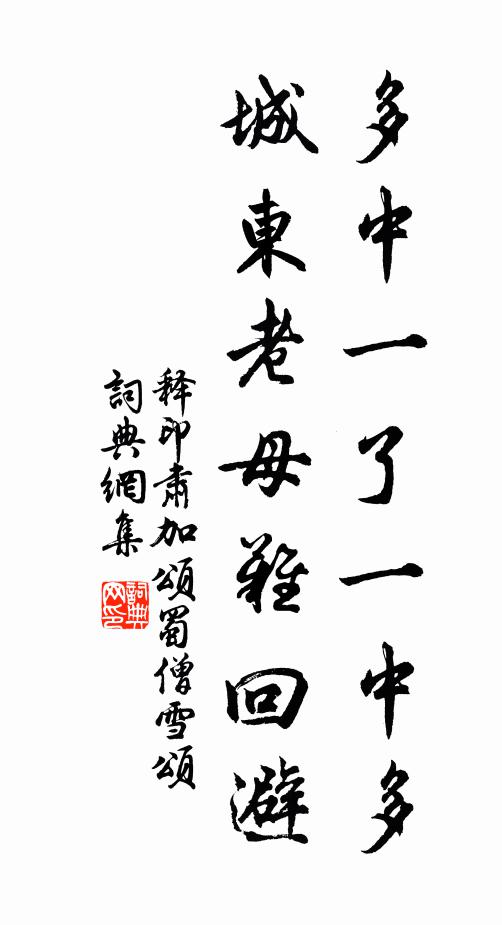 多中一了一中多
城東老母難回避
釋印肅加頌蜀僧雪頌
詞典網集
詞典
网印